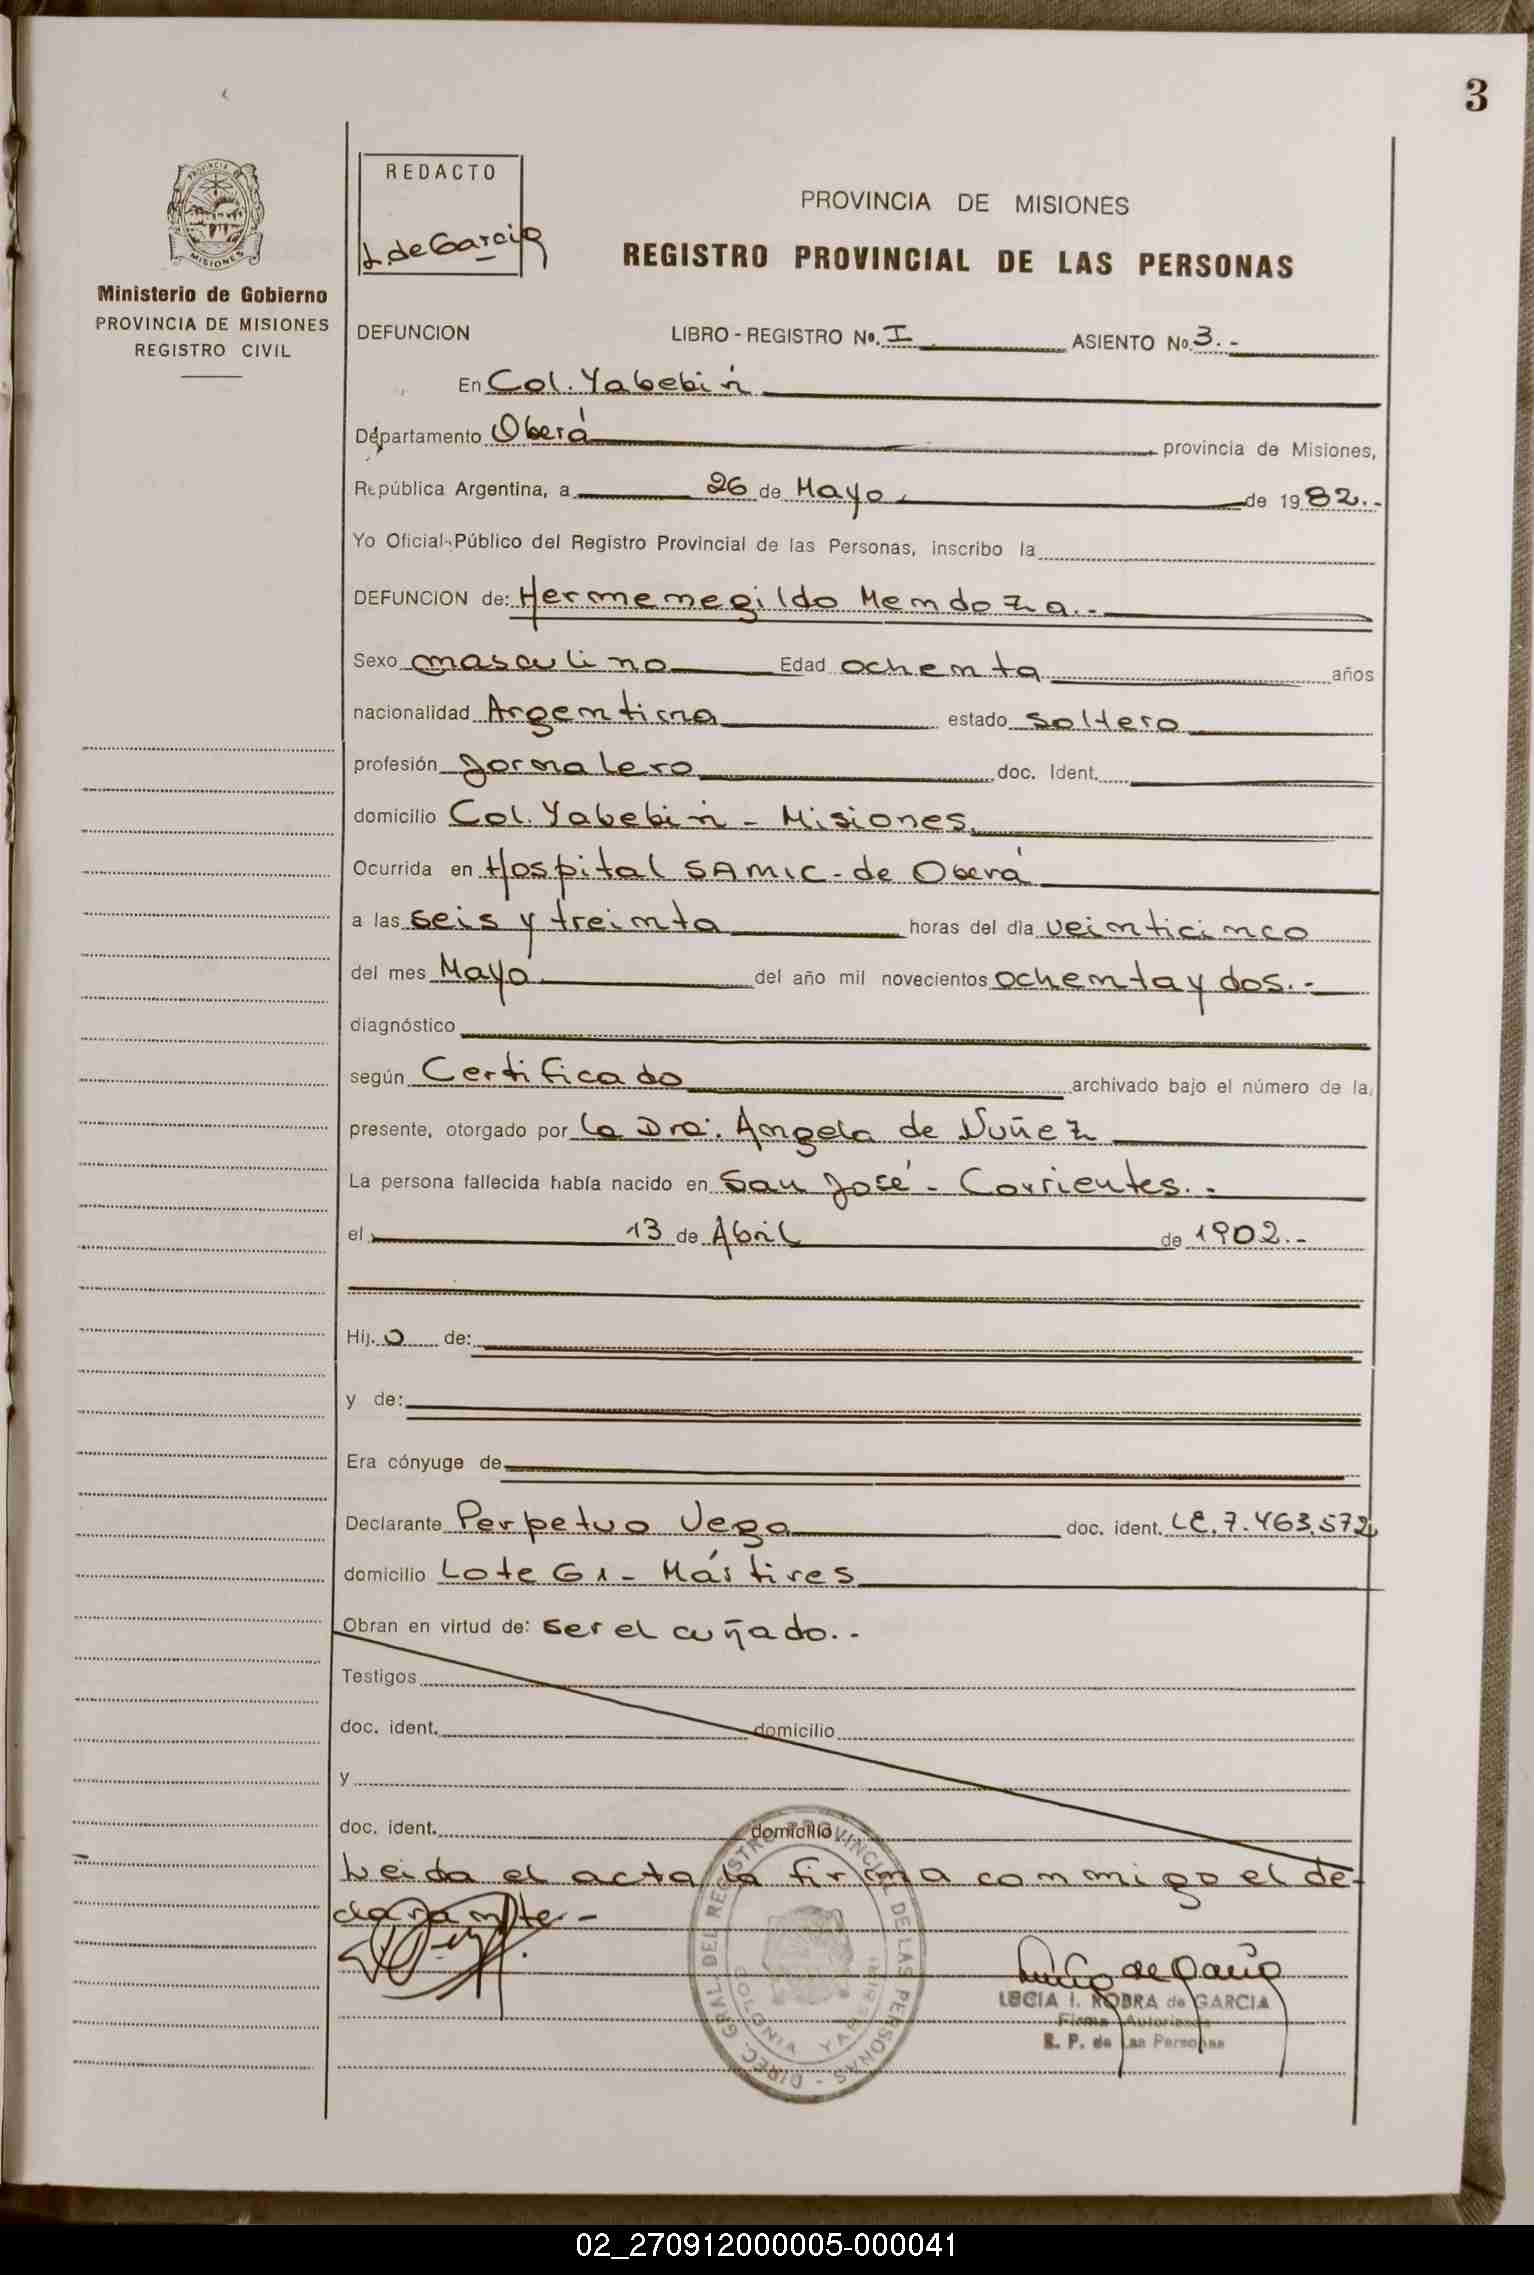 3
REDACTO
L de Garcia
PROVINCIA DE MISIONES
REGISTRO PROVINCIAL DE LAS PERSONAS
PROVINCIA DE
MISIONES
Ministerio de Gobierno
PROVINCIA DE MISIONES
REGISTRO CIVIL
DEFUNCION LIBRO - REGISTRO No. I ASIENTO No 3.-
En Col. Yabebirí
Departamento Oberá provincia de Misiones,
República Argentina, a 26 de Mayo de 1982.-
Yo Oficial Público del Registro Provincial de las Personas, inscribo la
DEFUNCION de: Hermenegildo Mendoza.-
Sexo masculino Edad ochenta años
nacionalidad Argentina estado soltero
profesión Jornalero doc. Ident.
domicilio Col. Yabebirí - Misiones
Ocurrida en Hospital SAMIC - de Oberá
a las seis y treinta horas del día veinticinco
del mes Mayo del año mil novecientos ochenta y dos.-
diagnóstico
según Certificado archivado bajo el número de la
presente, otorgado por la Dra. Angela de Nuñez
La persona fallecida había nacido en San José - Corrientes.-
el 13 de Abril de 1902.-
Hij.o de:
y de:
Era cónyuge de
Declarante Perpetuo Vega doc. ident. LE. 7.463.572
domicilio Lote 61 - Mártires
Obran en virtud de: ser el cuñado.-
Testigos
doc. ident. domicilio
y
doc. ident. domicilio
Leida el acta la firma conmigo el de-
clarante.-
DIREC. GRAL. DEL REGISTRO PROVINCIAL DE LAS PERSONAS -
COLONIA YABEBIRI
Lucia de Garcia
LUCIA I. ROBRA de GARCIA
Firma Autorizada
R. P. de las Personas
02_270912000005-000041